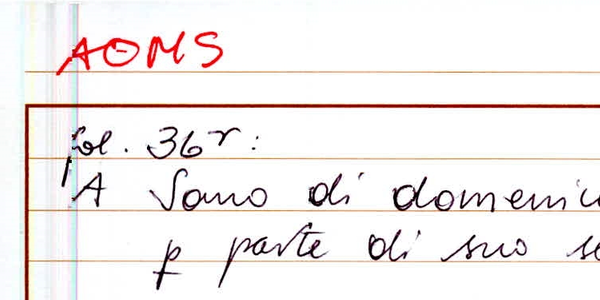 AOMS
fol. 36r:
A Sano di domenic
p parte di suo se